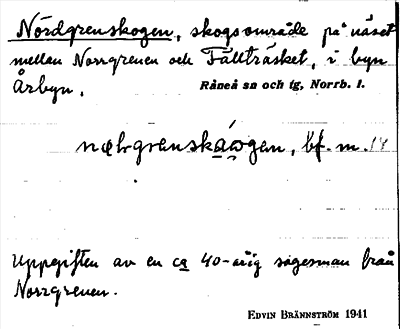 Nördgrenskogen, skogsområde på näset
mellan Norrgrenen och Fällträsket, i byn
Årbyn.
Råneå sn och tg, Norrb. l.
bf. m. 14
Uppgiften av en ca 40-årig sagesman från
Norrgrenen.
EDVIN BRÄNNSTRÖM 1941